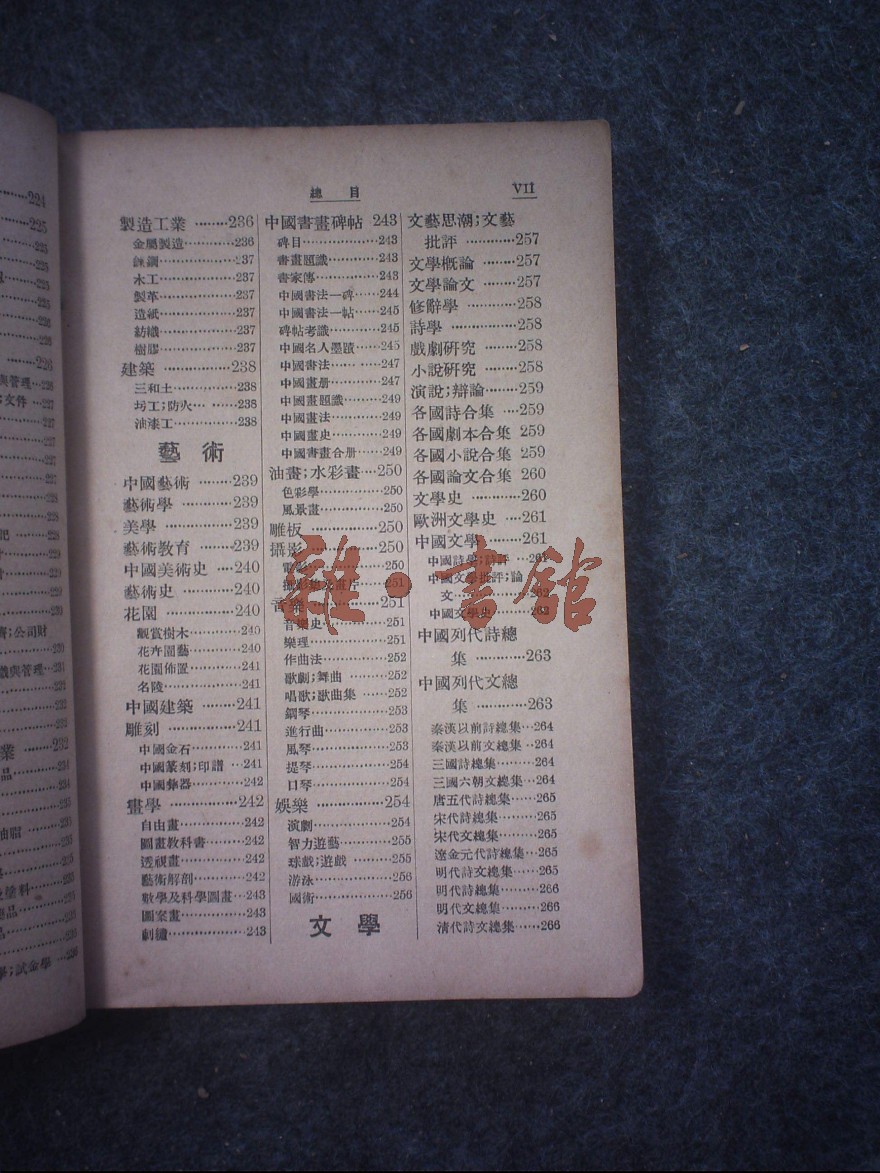 224
225
225
225
225
226
226
226
與管理…226
;文件…228
濟;公司財
識與管理…231
232
學;試金學…236
總目
VII
製造工業………236
金屬製造…………236
木工………………237
製革………………237
造紙………………237
紡織………………237
樹膠………………237
建築……………238
三和土……………238
圬工;防火………238
油漆工……………238
藝術
中國藝術………239
藝術學…………239
美學……………239
藝術教育………239
中國美術史……240
藝術史…………240
花園……………240
觀賞樹木…………240
花卉園藝…………240
花園佈置…………241
名陵………………241
中國建築………241
雕刻……………241
中國金石…………241
中國篆刻;印譜…241
中國彝器…………242
畫學……………242
自由畫……………242
圖畫教科書………242
透視畫……………242
藝術解剖…………242
數學及科學圖畫…243
圖案畫……………243
刺繡………………243
中國書畫碑帖 243
碑目………………243
書畫題識…………243
書家傳……………243
中國書法—碑……244
中國書法—帖……245
碑帖考識…………245
中國名人墨蹟……245
中國書法…………247
中國畫册…………247
中國畫題識………249
中國畫法…………249
中國畫史…………249
中國書畫合册……249
油畫;水彩畫…250
色彩學……………250
風景畫……………250
雕板……………250
攝影……………250
電影………………250
攝影集及畫片……251
音樂……………251
音樂史……………251
樂理………………251
作曲法……………252
歌劇;舞曲………252
唱歌;歌曲集……252
鋼琴………………253
進行曲……………253
風琴………………253
提琴………………254
口琴………………254
娛樂……………254
演劇………………254
智力遊藝…………255
球戲;遊戲………255
游泳………………256
國術………………256
文學
文藝思潮;文藝
批評…………257
文學概論………257
文學論文………257
修辭學…………258
詩學……………258
戲劇研究………258
小說研究………258
演說;辯論……259
各國詩合集……259
各國劇本合集 259
各國小說合集 259
各國論文合集 260
文學史…………260
歐洲文學史……261
中國文學………261
中國詩學;詩評…261
中國文學批評;論
文………………262
中國文學史………262
中國列代詩總
集……………263
中國列代文總
集……………263
秦漢以前詩總集…264
秦漢以前文總集…264
三國詩總集………264
三國六朝文總集…264
唐五代詩總集……265
宋代詩總集………265
宋代文總集………265
遼金元代詩總集…265
明代詩文總集……265
明代詩總集………266
明代文總集………266
清代詩文總集……266
雜·書館